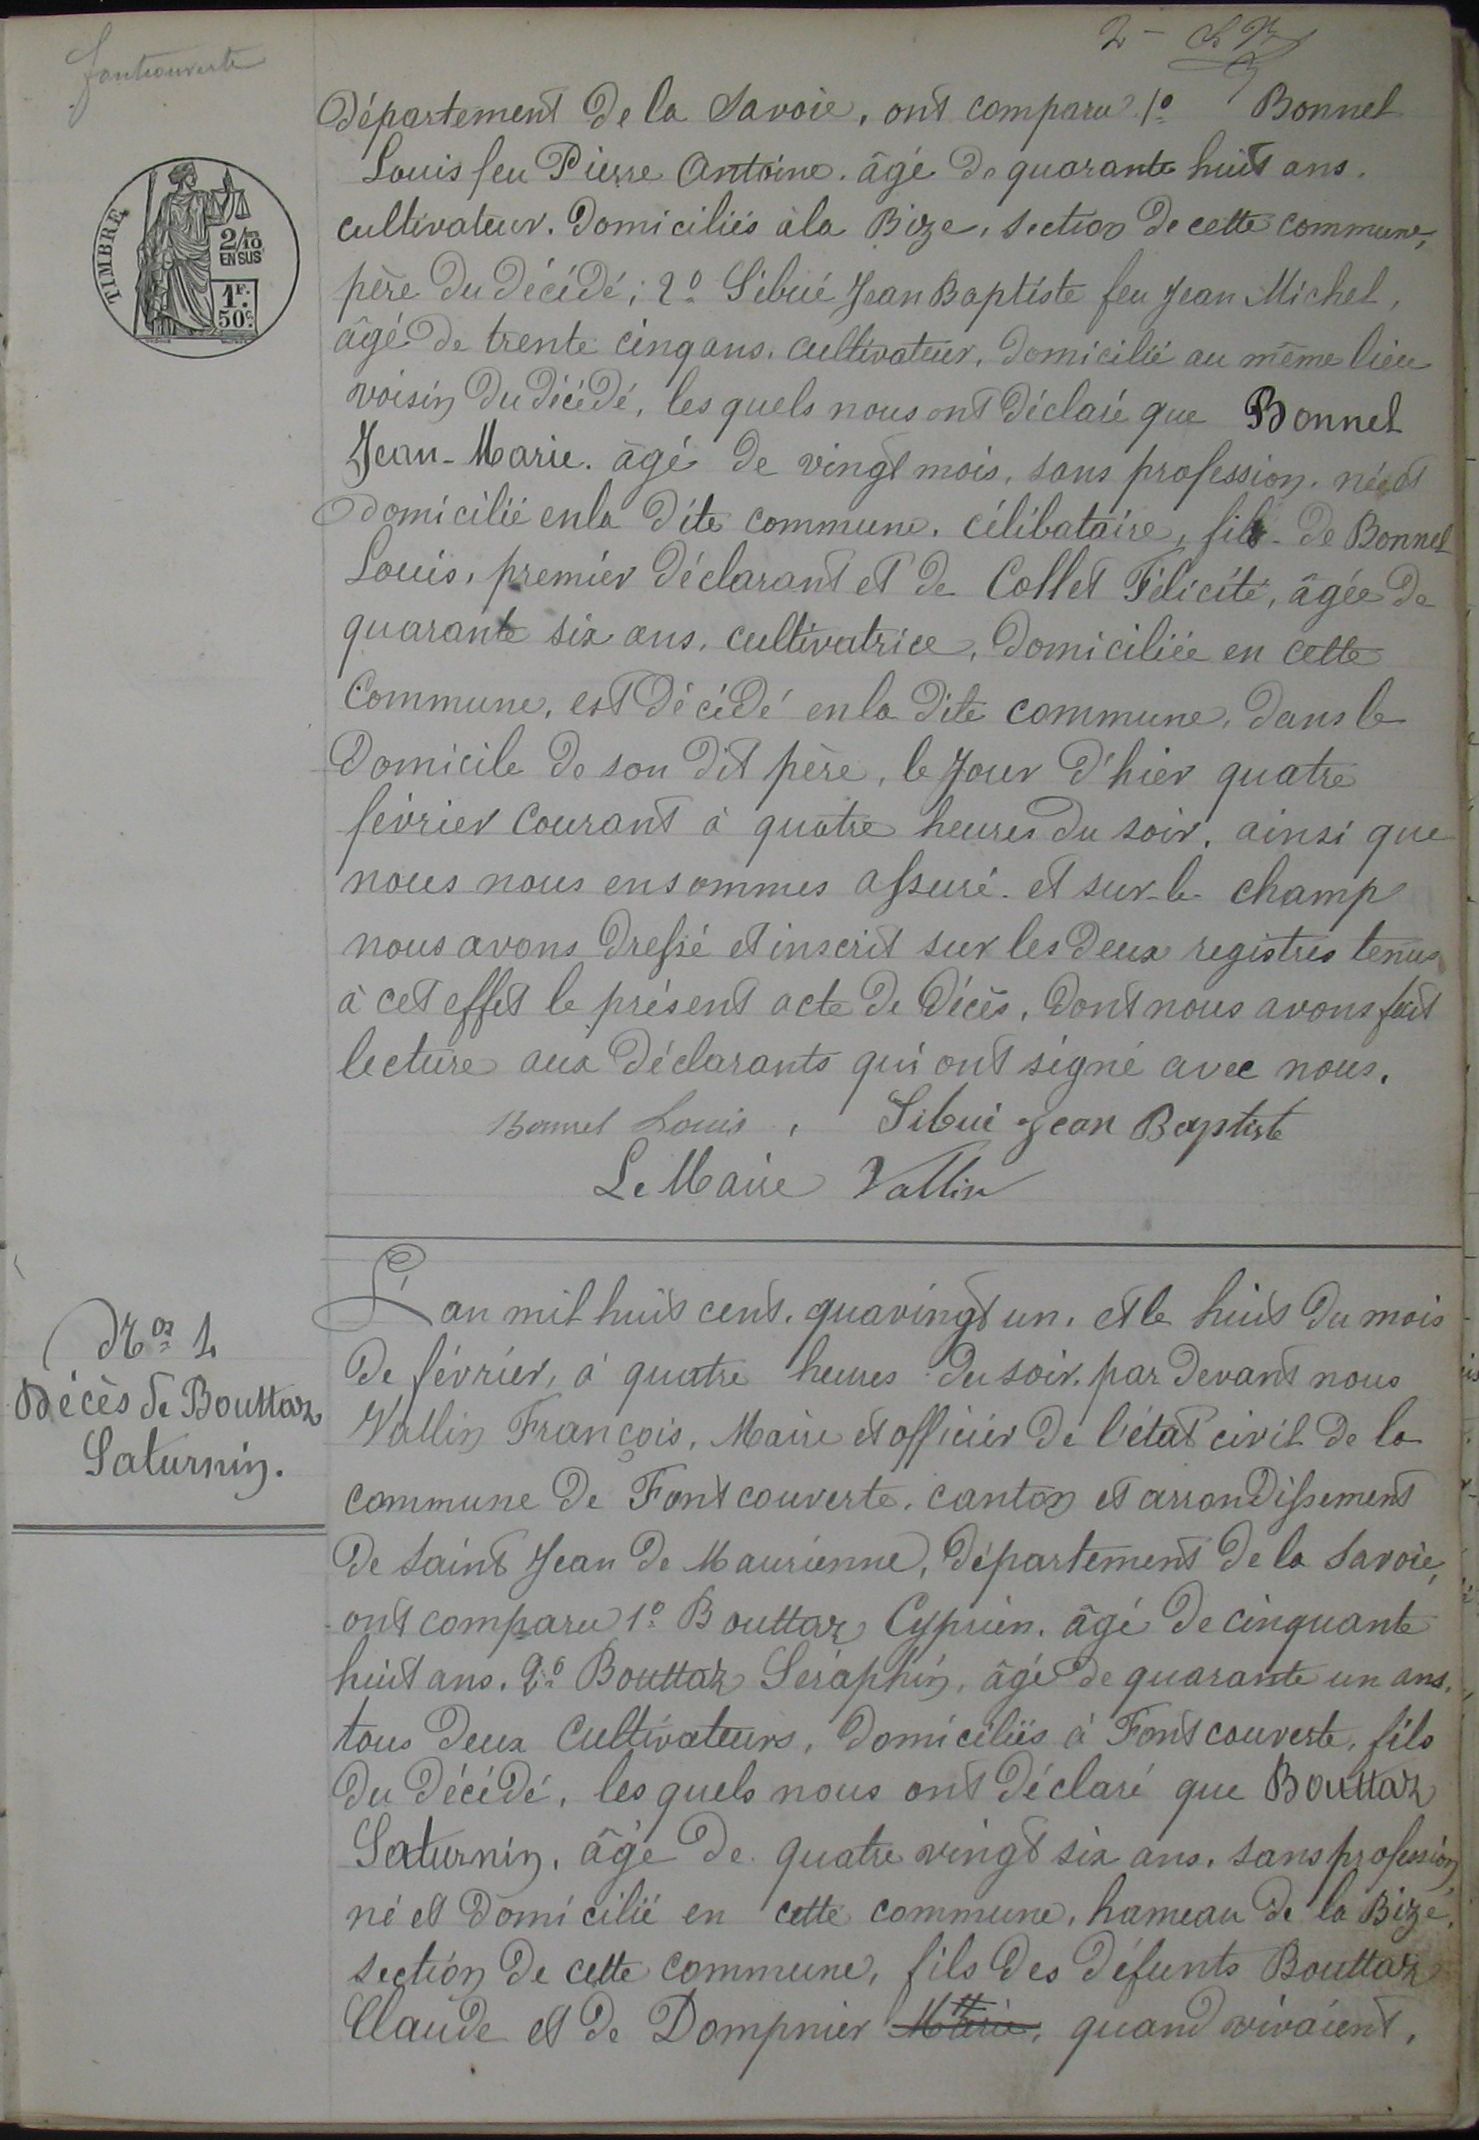 2 -
fontcouverte
TIMBRE
2/10
EN SUS
1F.
50c.
Département de la Savoie, ont comparu 1º Bonnel
Louis feu Pierre Antoine. âgé de quarante huit ans.
cultivateur. domiciliés à la Bize, section de cette commune,
père du décédé; 2º Sibué Jean Baptiste feu Jean Michel,
âgé de trente cinq ans. cultivateur, domicilié au même lieu
voisin du décédé, les quels nous ont déclaré que Bonnel
Jean-Marie. âgé de vingt mois, sans profession. né et
domicilié en la dite commune. célibataire, fils de Bonnel
Louis, premier déclarant et de Collet Félicité, âgée de
quarante six ans, cultivatrice, domiciliée en cette
Commune, est décédé en la dite commune, dans le
domicile de son dit père, le jour d'hier quatre
février courant à quatre heures du soir, ainsi que
nous nous en sommes assuré. et sur-le-champ
nous avons dressé et inscrit sur les deux registres tenus
à cet effet le présent acte de décès, dont nous avons fait
lecture aux déclarants qui ont signé avec nous.
Bonnel Louis, Sibué Jean Baptiste
Le Maire Vallin
Nos 4
Décès de Bouttaz
Saturnin.
L'an mil huit cent. quavingt un, et le huit du mois
de février, à quatre heures du soir, par devant nous
Vallin François, Maire et officier de l'état civil de la
commune de Fontcouverte, canton et arrondissement
de Saint Jean de Maurienne, département de la Savoie,
ont comparu 1º Bouttaz Cyprien. âgé de cinquante
huit ans. 2º Bouttaz Séraphin, âgé de quarante un ans,
tous deux Cultivateurs, domiciliés à Fontcouverte, fils
du décédé, les quels nous ont déclaré que Bouttaz
Saturnin, âgé de quatre vingt six ans. sans profession
né et domicilié en cette commune, hameau de la Bize,
section de cette commune, fils des défunts Bouttaz
Claude et de Dompnier Marie, quand vivaient,